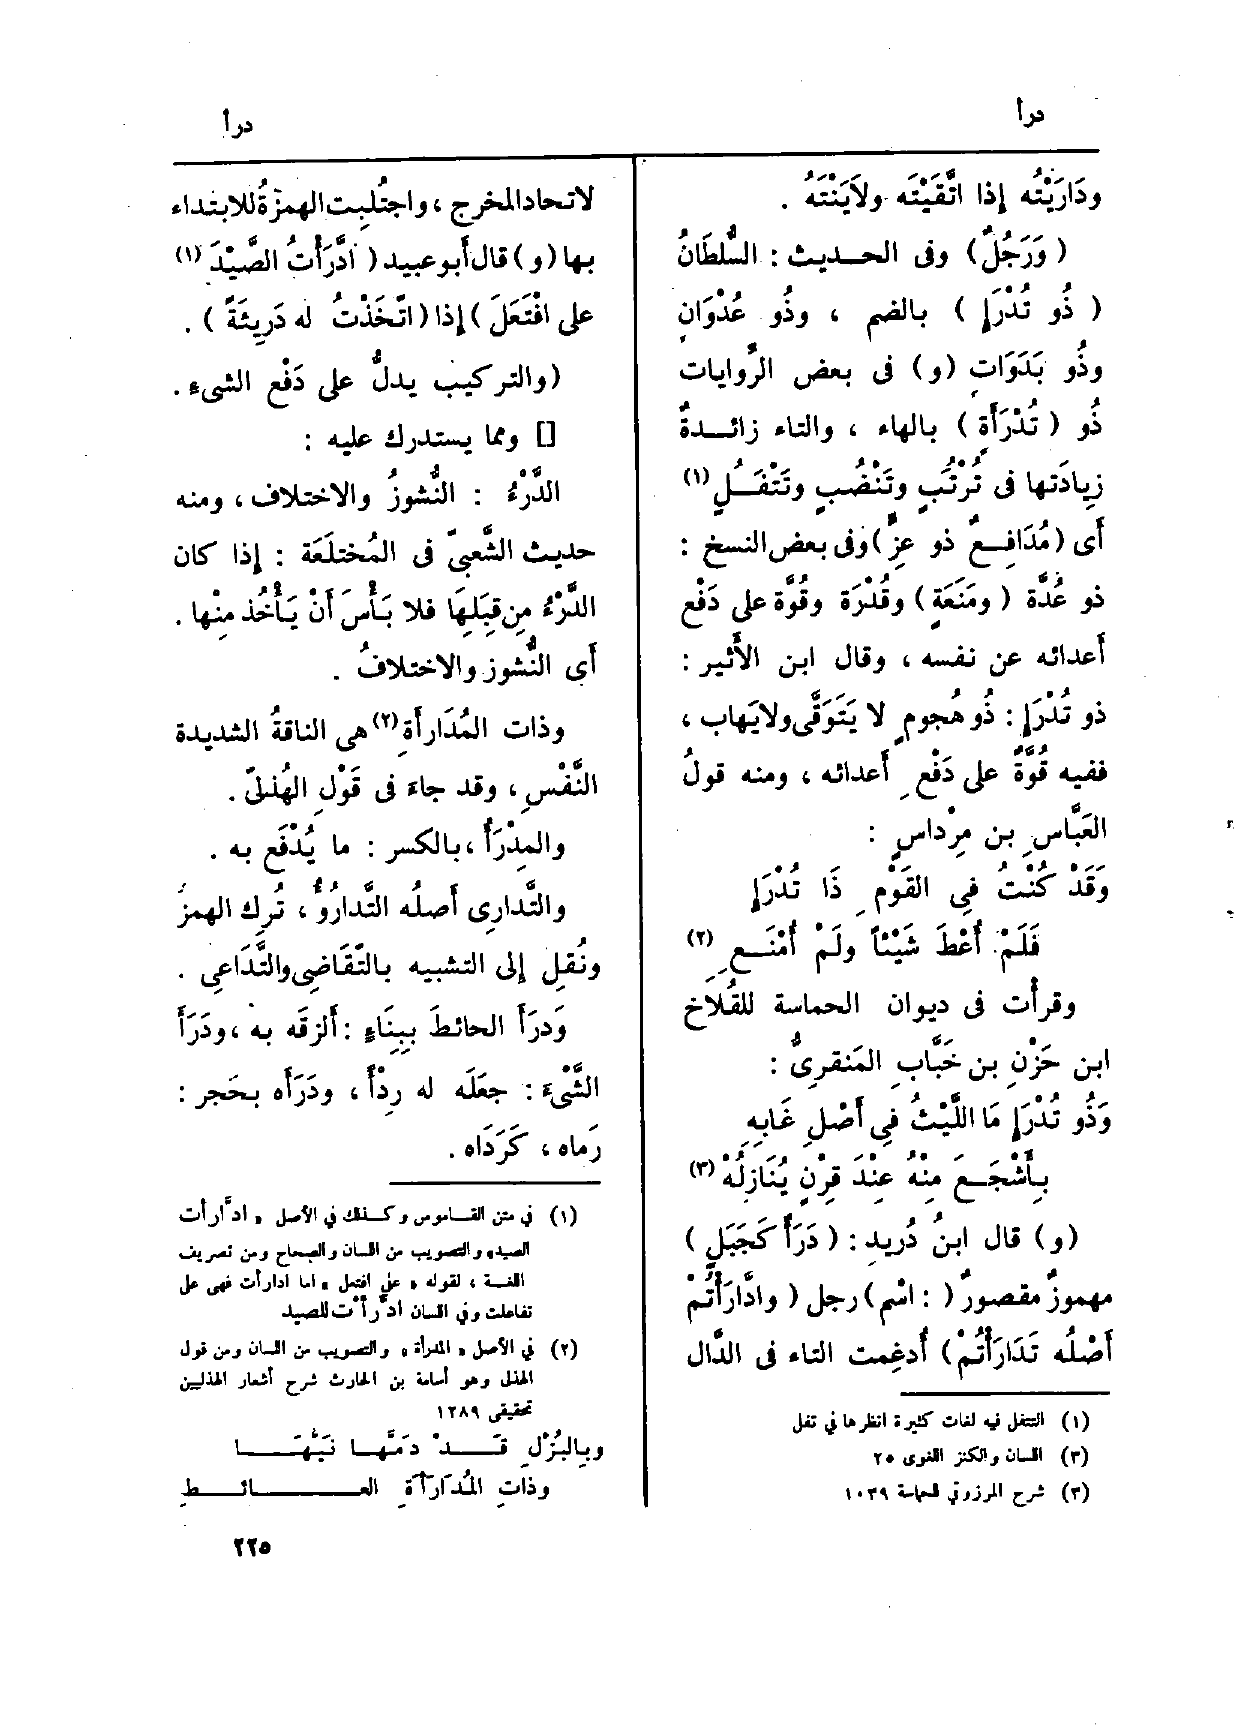 درأ
ودَارَيْتُه إذا اتَّقَيْتَه ولَايَنْتَهُ .
( وَرَجُلٌ ) وفى الحــديث : السُّلطَانُ
( ذُو تُدْرَإٍ ) بالضم ، وذُو عُدْوَانٍ
وذُو بَدَوَاتٍ (و) فى بعض الرُّوايات
ذُو ( تُدْرَأَةٍ ) بالهاء ، والتاء زائــدةٌ
زِيادَتها فى تُرْتُبٍ وتَنْضُبٍ وتَتْفُــلٍ (١)
أى (مُدَافِــعٌ ذو عِزٍّ) وفى بعض النسخ :
ذو عُدَّة ( ومَنَعَةٍ ) وقُدْرَة وقُوَّة على دَفْع
أَعدائه عن نفسه ، وقال ابن الأَثير :
ذو تُدْرَإٍ : ذُو هُجومٍ لا يَتَوَقَّى ولا يَهاب ،
ففيه قُوَّةٌ على دَفْعِ أَعدائه ، ومنه قولُ
العَبَّاسِ بن مِرْداسٍ :
وَقَدْ كُنْتُ فِى القَوْمِ ذَا تُدْرَإٍ
فَلَمْ أُعْطَ شَيْئاً ولَمْ أُمْنَــعِ (٢)
وقرأْت فى ديوان الحماسة للقُلَاخ
ابن حَزْنِ بن خَبَّابِ المَنقرِىُّ :
وَذُو تُدْرَإٍ مَا اللَّيْثُ فِى أَصْلِ غَابِهِ
بِأَشْجَــعَ مِنْهُ عِنْدَ قِرْنٍ يُنَازِلُهْ (٣)
(و) قال ابنُ دُريد : ( دَرَأٌ كَجَبَلٍ )
مهموزٌ مقصورٌ ( : اسْم ) رجل ( وادَّارَأْتُم
أَصْلُه تَدَارَأْتُمْ ) أُدغِمت التاء فى الدَّال
(١) التتفل فيه لغات كثيرة انظرها في تفل
(٢) اللسان والكنز اللغوى ٢٥
(٣) شرح المرزوقي للحماسة ١٠٣٩
درأ
لاتحاد المخرج ، واجتُلِبت الهمزةُ للابتداء
بها (و) قال أَبو عبيد ( ادَّرَأْتُ الصَّيْدَ (١)
على افْتَعَلَ ) إذا (اتَّخَذْتُ له دَرِيئَةً ) .
(والتركيب يدلُّ على دَفْع الشىء .
[] ومما يستدرك عليه :
الدَّرْءُ : النُّشوزُ والاختلاف ، ومنه
حديث الشَّعبىِّ فى المُختلَعَة : إذا كان
الدَّرْءُ من قِبَلِهَا فلا بَأْسَ أَنْ يَأْخُذ مِنْها .
أى النُّشوز والاختلافُ .
وذات المُدَارأَةِ (٢) هى الناقةُ الشديدة
النَّفْسِ ، وقد جاءَ فى قَوْلِ الهُذلىِّ .
والمِدْرَأُ ، بالكسر : ما يُدْفَع به .
والتَّدارِى أَصلُه التَّدارُؤُ ، تُرِك الهمزُ
ونُقِل إلى التشبيه بالتَّقَاضِى والتَّدَاعِى .
وَدرَأَ الحائطَ بِبِنَاءٍ : أَلزقَه به ، ودَرَأَ
الشَّىْءَ : جعَلَه له رِدْأً ، ودَرَأَه بحَجر :
رَماه ، كَرَدَاه .
(١) في متن القــاموس وكــذلك في الأصل « ادَّارأت
الصيد» والتصويب من اللسان والصحاح ومن تصريف
اللغــة ، لقوله « على افتعل » اما ادارأت فهى على
تفاعلت وفي اللسان ادَّرأْت للصيد
(٢) في الأصل « المدرأة » والتصويب من اللسان ومن قول
الهذلى وهو أسامة بن الحارث شرح أشعار الهذليين
تحقيقى ١٢٨٩
وبِالبُزْلِ قَــــدْ دَمَّهــا نَيُّهَـــا
وذاتِ المُدَارأةِ العــــائــــطِ
٢٢٥